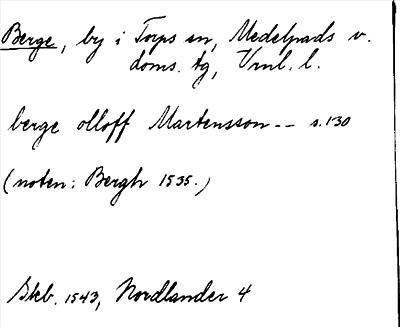 Berge, by i Torps sn, Medelpads v.
doms. tg, Vrnl. l.
berge olloff Martensson -- s. 130
(noten: Bergh 1535.)
Skb. 1543, Nordlander 4